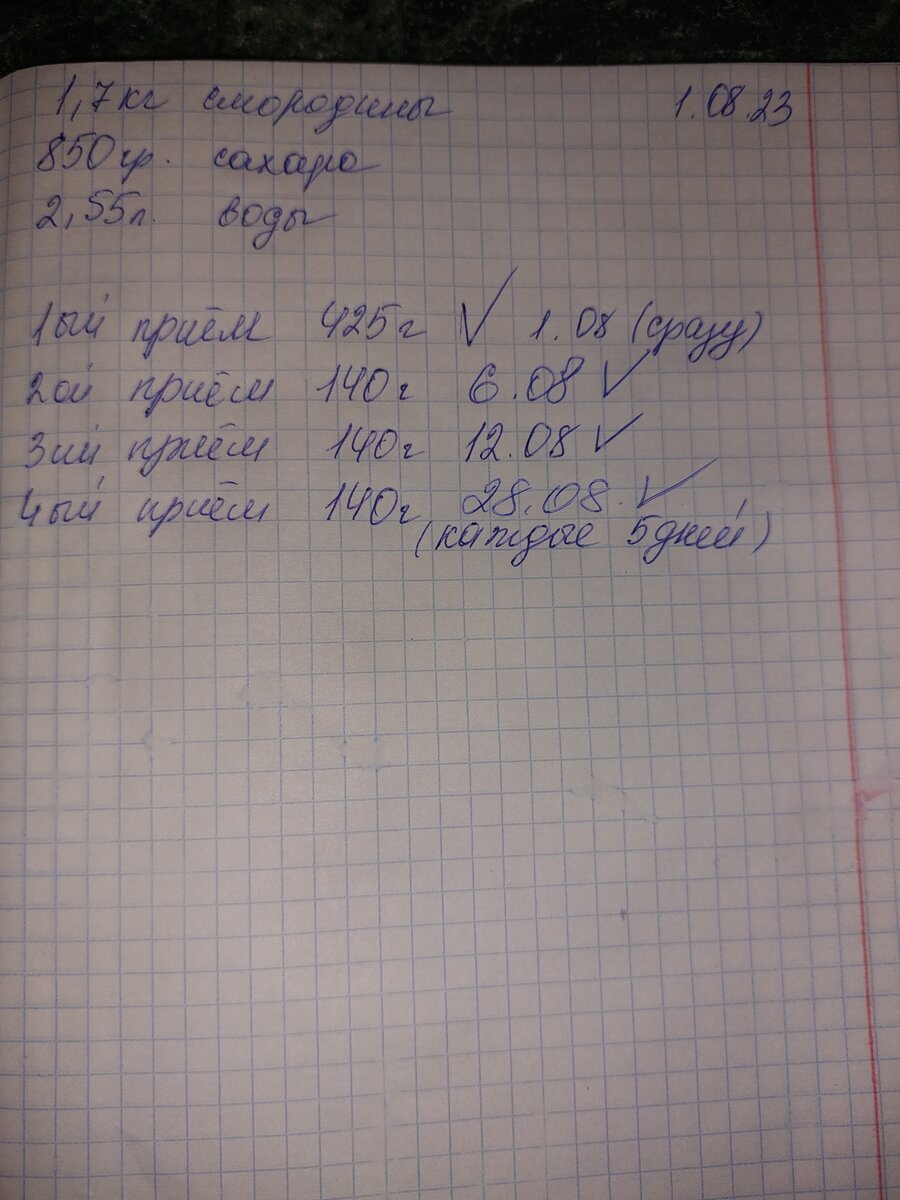 1,7кг смородины 1.08.23
850гр. сахара
2,55л. воды
1ый приём 425г ✓ 1.08 (сразу)
2ой приём 140г 6.08 ✓
3ий приём 140г 12.08 ✓
4ый приём 140г 28.08. ✓
(каждые 5дней)